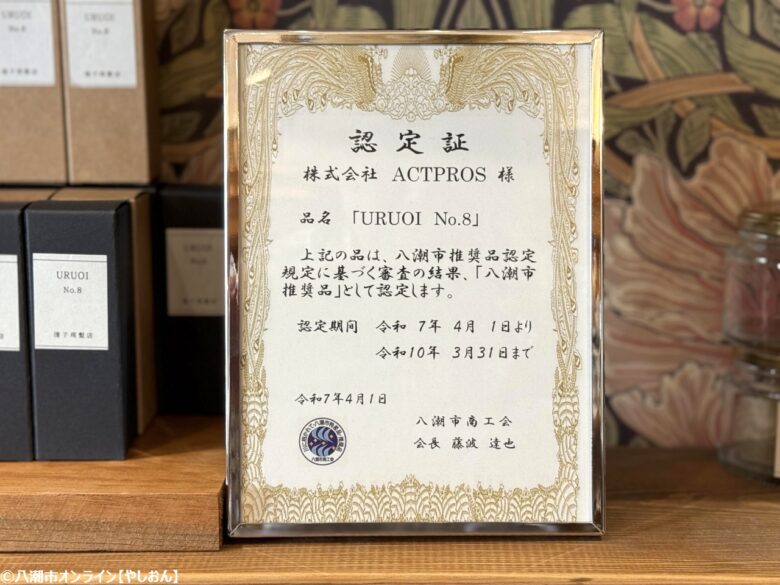 認定証
株式会社 ACTPROS 様
品名 「URUOI No.8」
上記の品は、八潮市推奨品認定
規定に基づく審査の結果、「八潮市
推奨品」として認定します。
認定期間 令和 7年 4月 1日より
令和10年 3月31日まで
令和7年4月1日
八潮市商工会
会長 藤波 達也
八潮市商工会
URUOI
No.8
URUOI
No.8
©八潮市オンライン【やしおん】